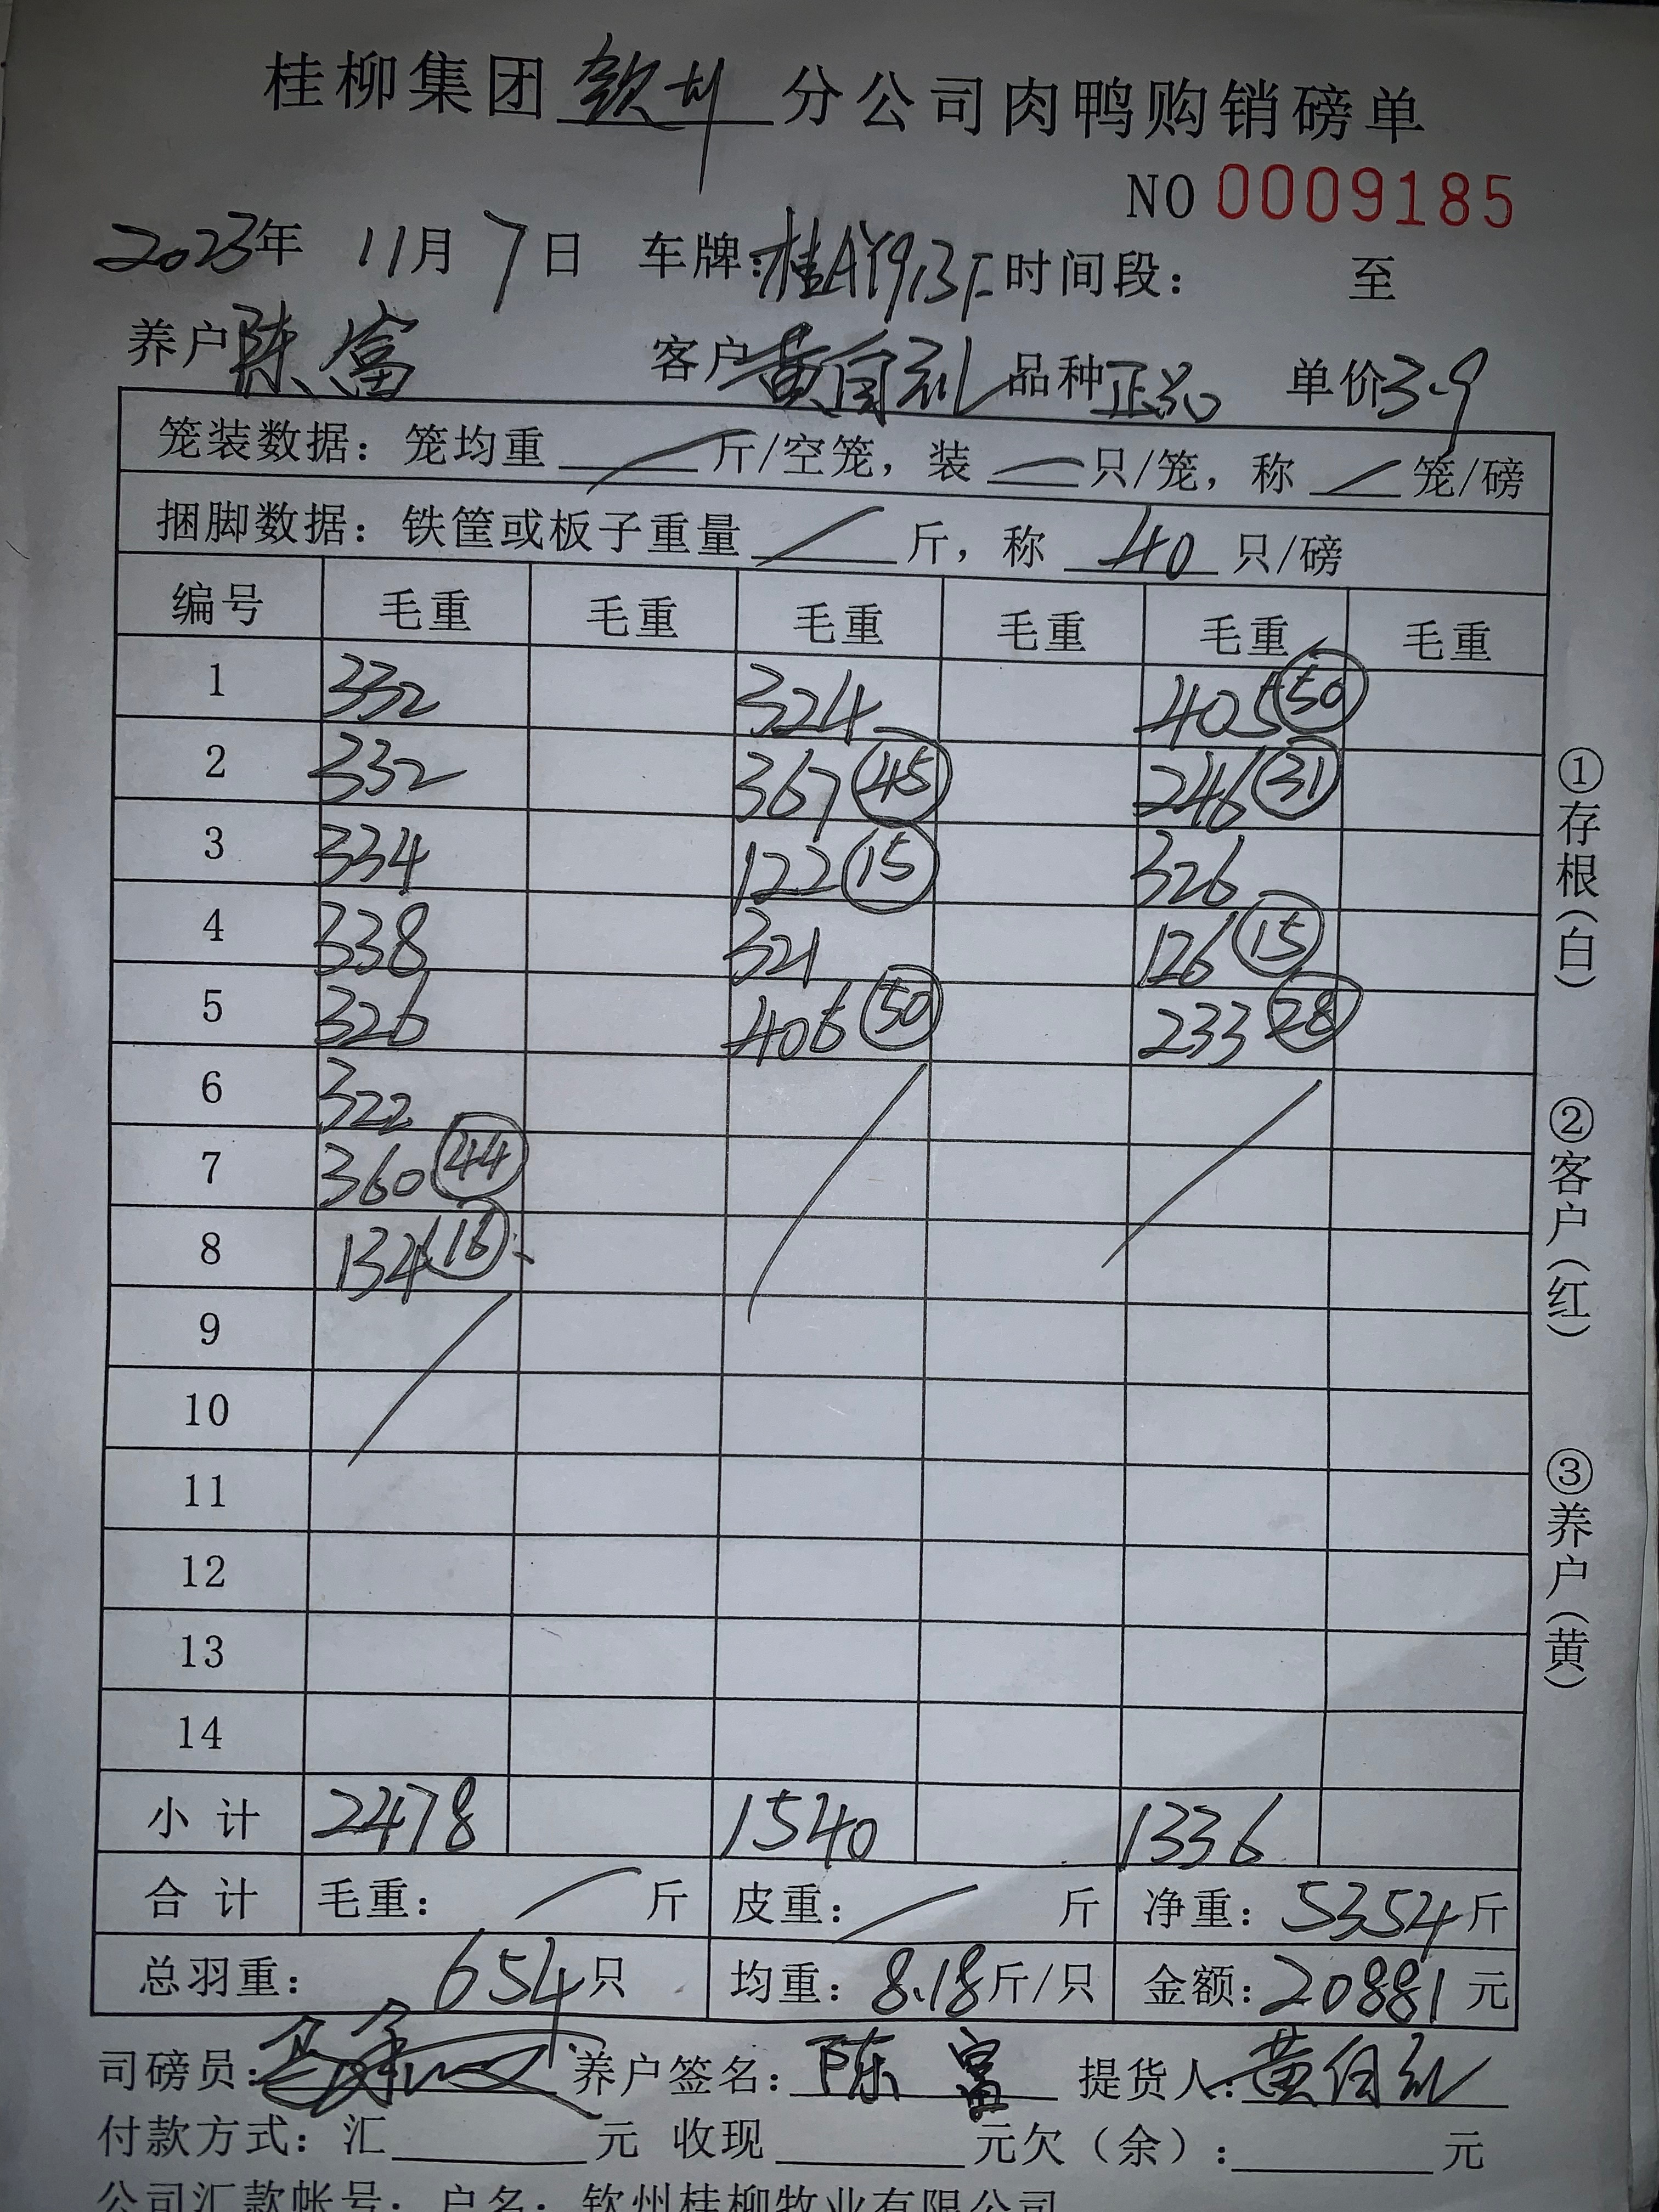 桂柳集团 钦州 分公司肉鸭购销磅单
NO 0009185
2023年 11月 7日 车牌:桂AY913F 时间段: 至
养户 陈富 客户 黄自礼 品种 正品 单价 3.9
笼装数据: 笼均重 斤/空笼, 装 只/笼, 称 笼/磅
捆脚数据: 铁筐或板子重量 斤, 称 40 只/磅
编号 毛重 毛重 毛重 毛重 毛重 毛重
1 332 324 405 50
2 332 367 45 246 31
3 334 122 15 326
4 338 321 126 15
5 326 406 50 233 28
6 322
7 360 44
8 134 16
9
10
11
12
13
14
小计 2478 1540 1336
合计 毛重: 斤 皮重: 斤 净重: 5354 斤
总羽重: 654 只 均重: 8.18 斤/只 金额: 20881 元
司磅员: 养户签名: 陈富 提货人: 黄自礼
付款方式: 汇 元 收现 元欠(余): 元
公司汇款帐号: 户名: 钦州桂柳牧业有限公司
①存根(白)
②客户(红)
③养户(黄)